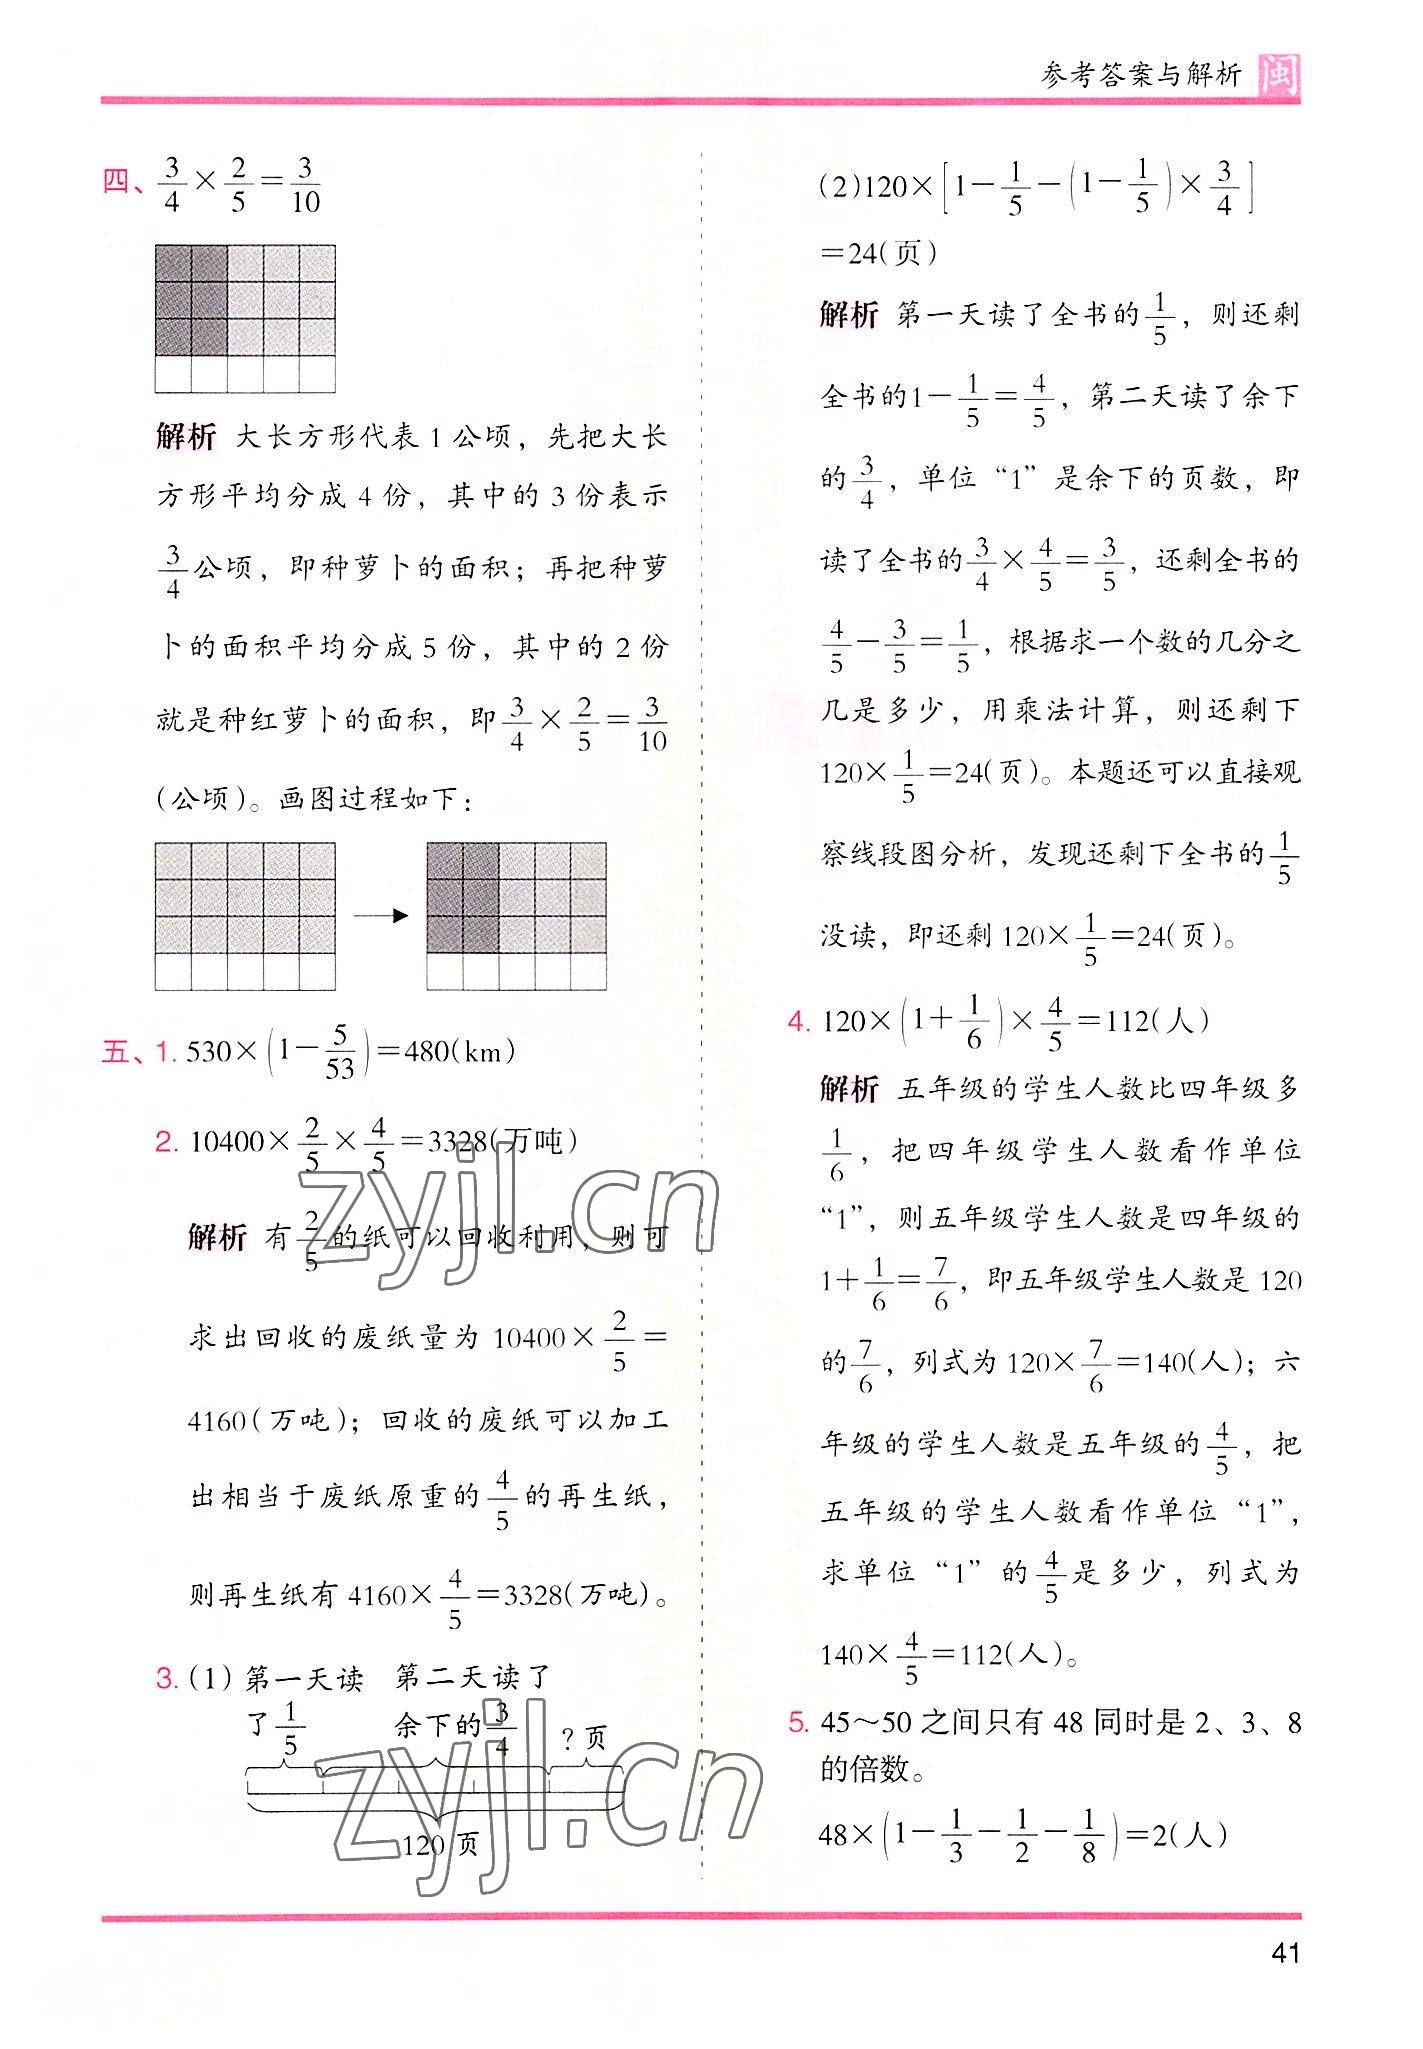 参考答案与解析 闽
四、3/4×2/5=3/10
解析 大长方形代表1公顷，先把大长
方形平均分成4份，其中的3份表示
3/4公顷，即种萝卜的面积；再把种萝
卜的面积平均分成5份，其中的2份
就是种红萝卜的面积，即3/4×2/5=3/10
(公顷)。画图过程如下：
五、1. 530×(1-5/53)=480(km)
2. 10400×2/5×4/5=3328(万吨)
解析 有2/5的纸可以回收利用，则可
求出回收的废纸量为10400×2/5=
4160(万吨)；回收的废纸可以加工
出相当于废纸原重的4/5的再生纸，
则再生纸有4160×4/5=3328(万吨)。
3. (1) 第一天读 第二天读了
了1/5 余下的3/4 ？页
120页
(2)120×[1-1/5-(1-1/5)×3/4]
=24(页)
解析 第一天读了全书的1/5，则还剩
全书的1-1/5=4/5，第二天读了余下
的3/4，单位“1”是余下的页数，即
读了全书的3/4×4/5=3/5，还剩全书的
4/5-3/5=1/5，根据求一个数的几分之
几是多少，用乘法计算，则还剩下
120×1/5=24(页)。本题还可以直接观
察线段图分析，发现还剩下全书的1/5
没读，即还剩120×1/5=24(页)。
4. 120×(1+1/6)×4/5=112(人)
解析 五年级的学生人数比四年级多
1/6，把四年级学生人数看作单位
“1”，则五年级学生人数是四年级的
1+1/6=7/6，即五年级学生人数是120
的7/6，列式为120×7/6=140(人)；六
年级的学生人数是五年级的4/5，把
五年级的学生人数看作单位“1”，
求单位“1”的4/5是多少，列式为
140×4/5=112(人)。
5. 45～50之间只有48同时是2、3、8
的倍数。
48×(1-1/3-1/2-1/8)=2(人)
zyjl.cn
zyjl.cn
41